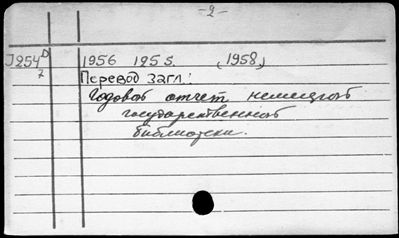 -2-
J254 D/7 1956 125 s. (1958)
Перевод загл.:
Годовой отчет немецкой
государственной
библиотеки.